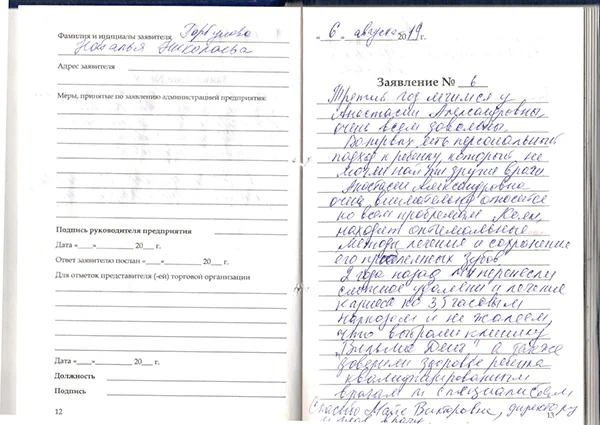 Фамилия и инициалы заявителя Горбунова
Наталья Николаевна
Адрес заявителя
Меры, принятые по заявлению администрацией предприятия:
Подпись руководителя предприятия
Дата «___»________ 20___ г.
Ответ заявителю послан «___»________ 20___ г.
Для отметок представителя (-ей) торговой организации
Дата «___»________ 20___ г.
Должность
Подпись
12
« 6 » августа 2019 г.
Заявление № 6
Третий год лечимся у
Анастасии Александровны,
очень всем довольны.
Во первых есть персональный
подход к ребенку, который не
могли найти другие врачи
Анастасия Александровна
очень внимательно относится
ко всем проблемам Коли,
находит оптимальные
методы лечения и сохранения
его проблемных зубов.
2 года назад перенесли
сложное удаление и лечение
кариеса по 3,5 часовым
наркозом и не жалеем,
что выбрали клинику
"Вильма Дент" а также
доверили здоровье ребенка
квалифицированным
врачам и специалистам
Спасибо Майе Викторовне, директору
13